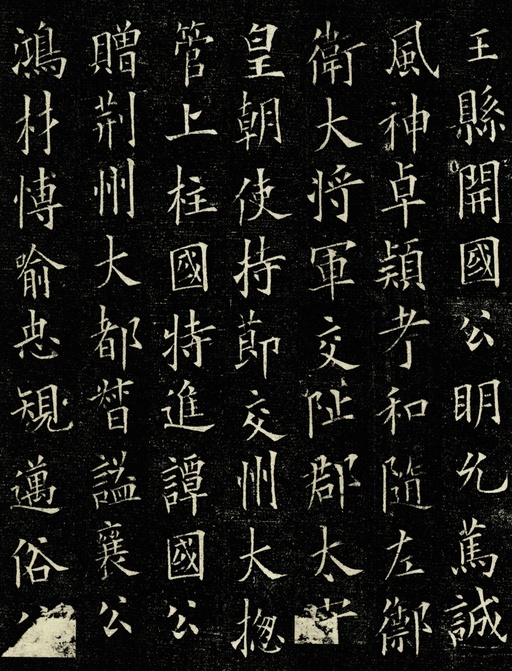 王縣開國公眀允篤誠
風神卓穎考和隨左禦
衛大将軍交阯郡太守
皇朝使持節交州大揔
管上柱國特進譚國公
贈荊州大都督謚襄公
鴻材愽喻忠規邁俗